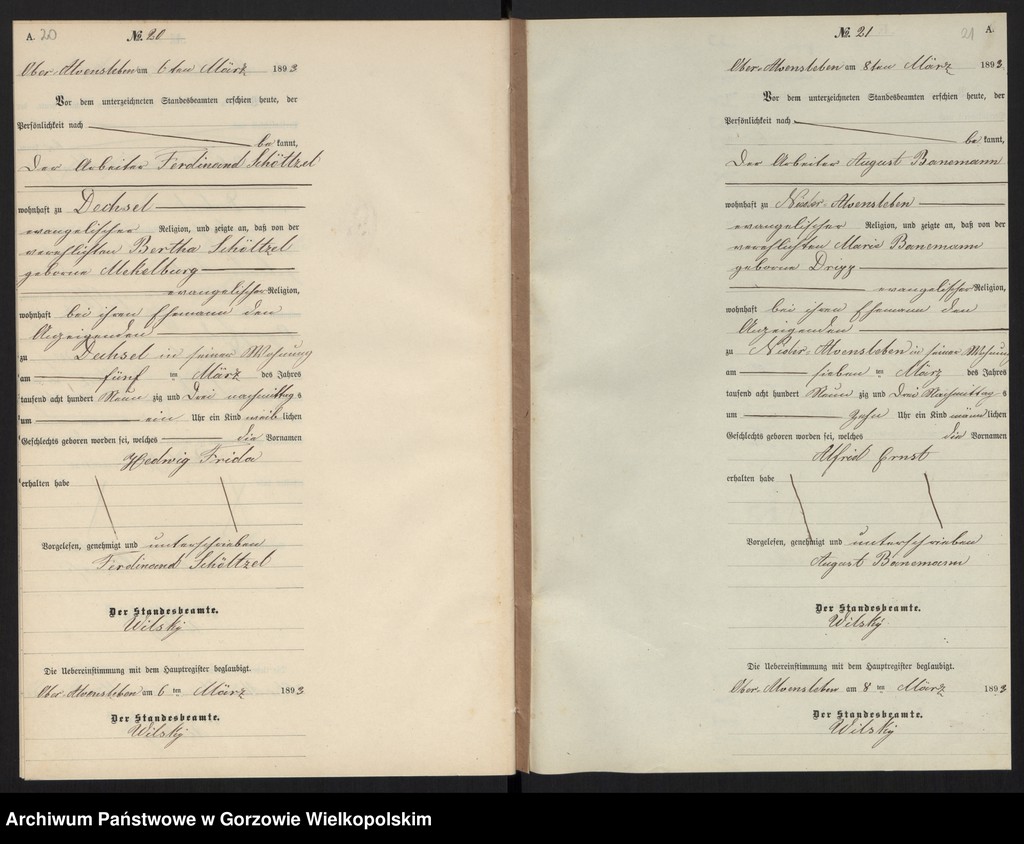 A. 20
№. 20
Ober-Alvensleben am 6ten März 1893
Vor dem unterzeichneten Standesbeamten erschien heute, der
Persönlichkeit nach
be kannt,
Der Arbeiter Ferdinand Schöttzel
wohnhaft zu Dechsel
evangelischer Religion, und zeigte an, daß von der
verehlichten Bertha Schöttzel
geborne Mekelburg
evangelischer Religion,
wohnhaft bei ihren Ehemann den
Anzeigenden
zu Dechsel in seiner Wohnung
am fünf ten März des Jahres
tausend acht hundert Neun zig und Drei nachmittag s
um ein Uhr ein Kind weib lichen
Geschlechts geboren worden sei, welches die Vornamen
Hedwig Frida
erhalten habe
Vorgelesen, genehmigt und unterschrieben
Ferdinand Schöttzel
Der Standesbeamte.
Wilsky
Die Uebereinstimmung mit dem Hauptregister beglaubigt.
Ober-Alvensleben am 6 ten März 1893
Der Standesbeamte.
Wilsky
№. 21
21 A.
Ober-Alvensleben am 8ten März 1893.
Vor dem unterzeichneten Standesbeamten erschien heute, der
Persönlichkeit nach
be kannt,
Der Arbeiter August Banemann
wohnhaft zu Nieder-Alvensleben
evangelischer Religion, und zeigte an, daß von der
verehlichten Marie Banemann
geborne
evangelischer Religion,
wohnhaft bei ihren Ehemann den
Anzeigenden
zu Nieder-Alvensleben in seiner Wohnung
am sieben ten März des Jahres
tausend acht hundert Neun zig und Drei Nachmittag s
um Zehn Uhr ein Kind männ lichen
Geschlechts geboren worden sei, welches die Vornamen
Alfred Ernst
erhalten habe
Vorgelesen, genehmigt und unterschrieben
August Banemann
Der Standesbeamte.
Wilsky
Die Uebereinstimmung mit dem Hauptregister beglaubigt.
Ober-Alvensleben am 8 ten März 1893
Der Standesbeamte.
Wilsky
Archiwum Państwowe w Gorzowie Wielkopolskim